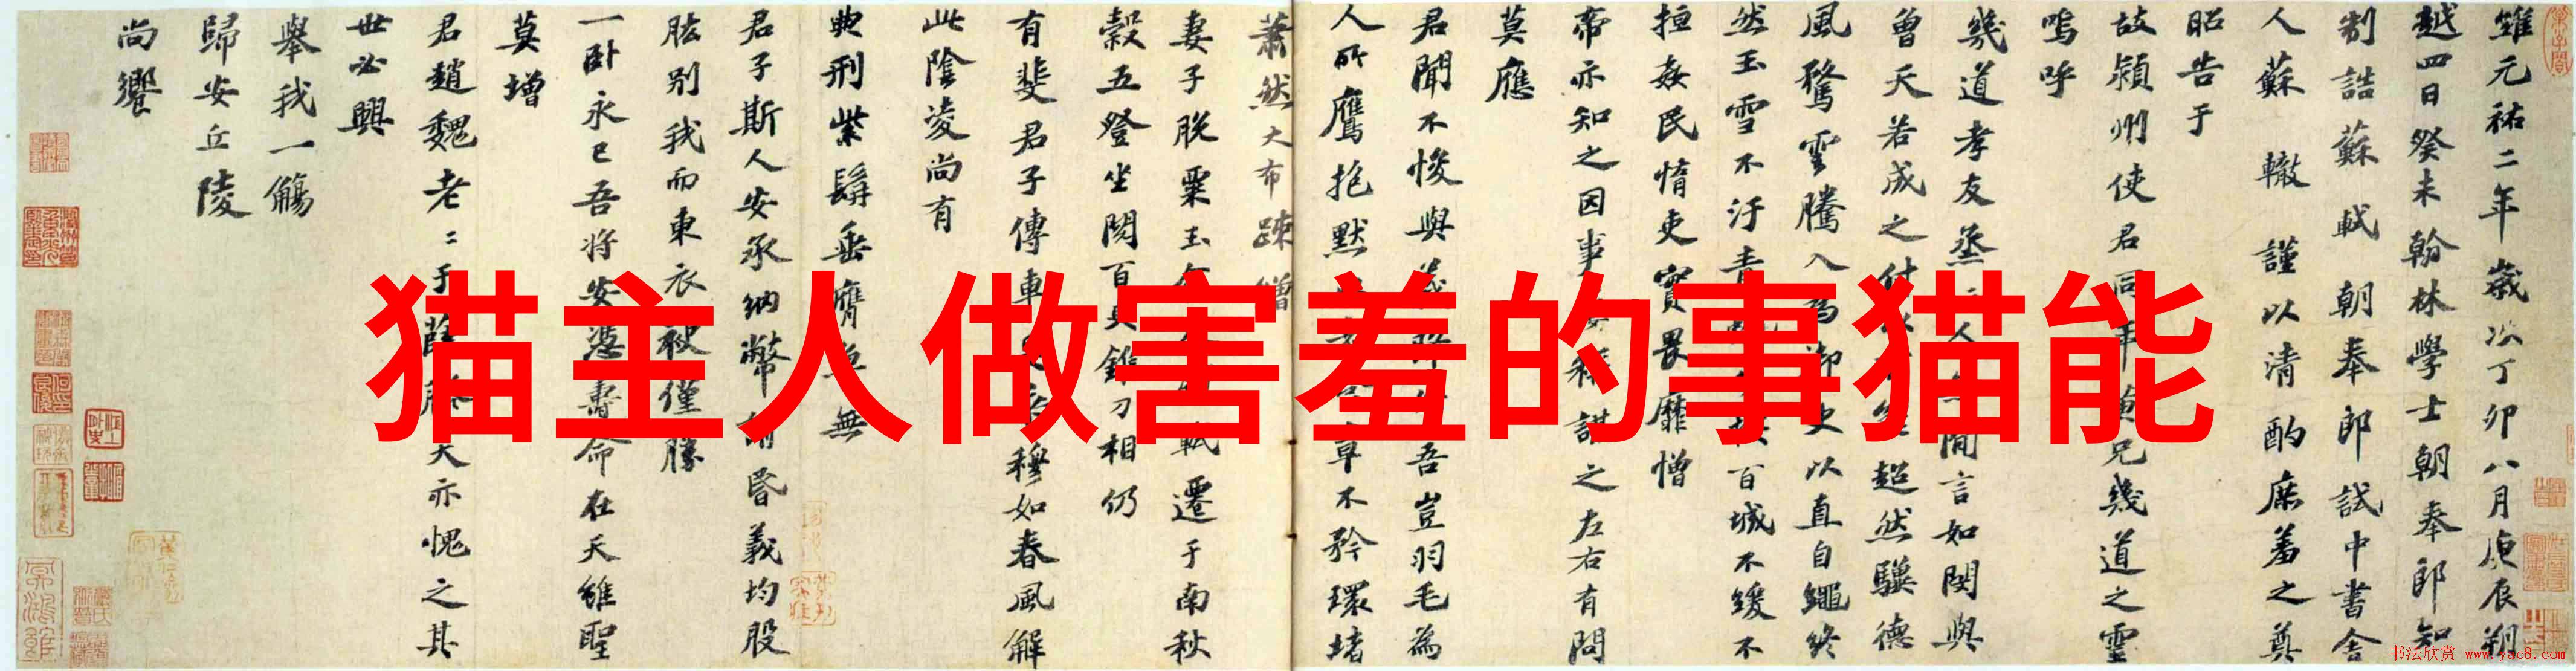 猫主人做害羞的事猫能
維元祐二年歲次丁卯八月庚辰朔
越四日癸未翰林學士朝奉郎知
制誥蘇軾朝奉郎試中書舍
人蘇轍謹以清酌庶羞之奠
昭告于
故潁州使君同年黄兄幾道之靈
嗚呼
幾道孝友烝人間言如閔與
曾天若成之付超然驥德
風騖雲騰入為御史以直自繩終
然玉雪不汙青按百城不緩不
拒姦民惰吏實畏靡憎
帝亦知之因事稱謀之左右有問
莫應
君聞不悛與義吾豈羽毛為
人所鷹抱默章不矜環堵
蕭然大布疎繒
妻子脱粟玉軾遷于南秋
穀五登坐閱百具錐刀相仍
有斐君子傳車穆如春風解
此陰凌尚有
典刑紫髯垂膺無
君子斯人安承納幣請昏義均股
肱别我而東衣袂僅勝
一卧永已吾將安憑壽命在天雖聖
莫增
君趙魏老二于薛滕天亦愧之其
世必興
舉我一觴
歸安丘陵
尚饗
书法欣赏 www.yac8.com